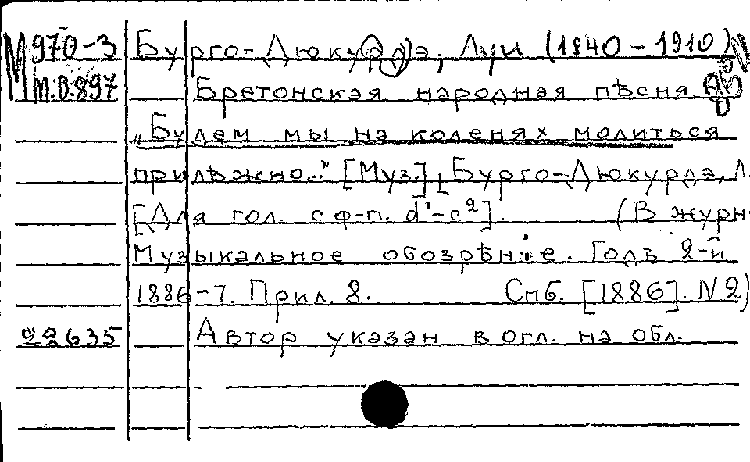 М 970-3 Бурго-Дюкудрэ, Луи (1840-1910)
М.О.897 Бретонская народная пѣсня
„Будем мы на коленях молиться
прилѣжно..." [Муз.] [Бурго-Дюкудрэ, Л.
[Для гол. с ф-п. d¹-c²]. (В журн.
Музыкальное обозрѣніе. Годъ 2-й
1886-7. Прил. 2. Спб. [1886]. N 2)
22635 Автор указан в огл. на обл.